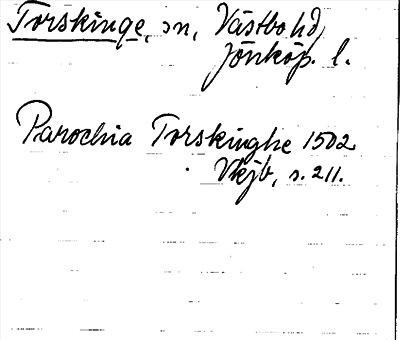 Torskinge, sn, Västbo hd,
Jönköp. l.
Parochia Torskinghe 1502
Vkjb, s. 211.